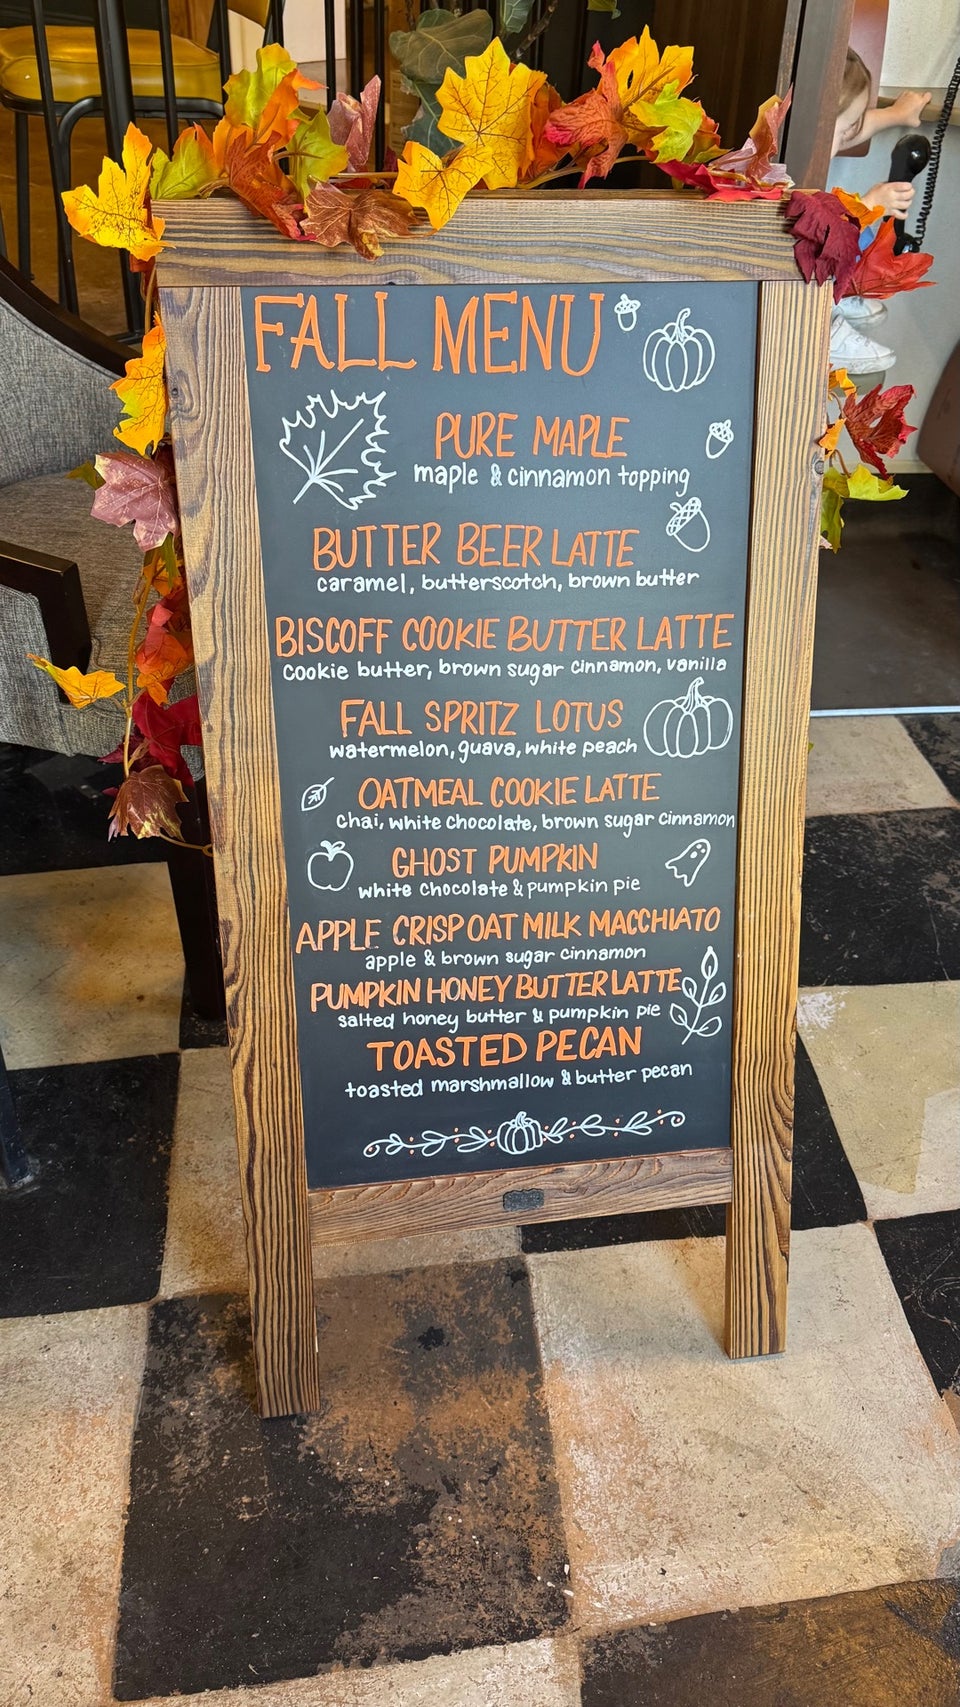 FALL MENU
PURE MAPLE
maple & cinnamon topping
BUTTER BEER LATTE
caramel, butterscotch, brown butter
BISCOFF COOKIE BUTTER LATTE
cookie butter, brown sugar cinnamon, vanilla
FALL SPRITZ LOTUS
watermelon, guava, white peach
OATMEAL COOKIE LATTE
chai, white chocolate, brown sugar cinnamon
GHOST PUMPKIN
white chocolate & pumpkin pie
APPLE CRISP OAT MILK MACCHIATO
apple & brown sugar cinnamon
PUMPKIN HONEY BUTTER LATTE
salted honey butter & pumpkin pie
TOASTED PECAN
toasted marshmallow & butter pecan